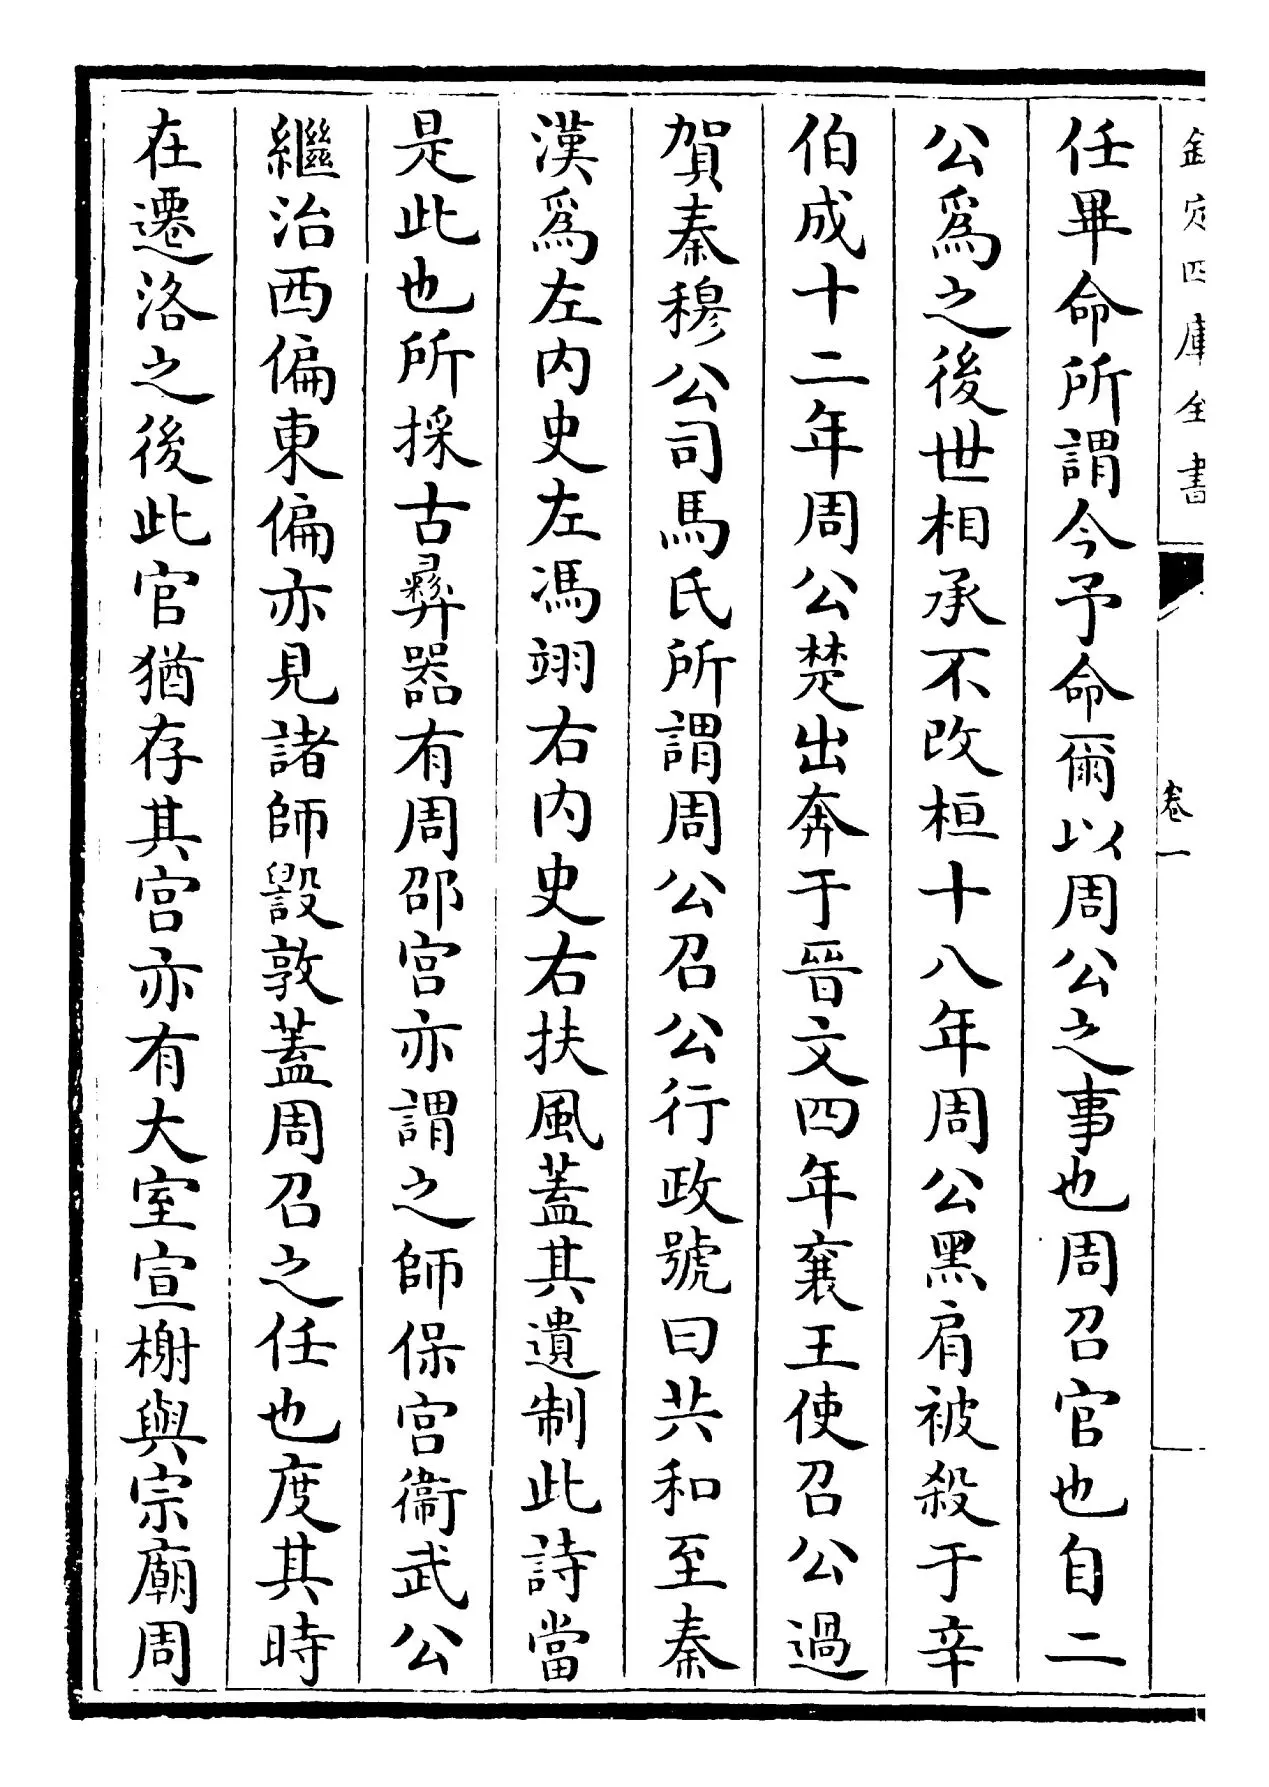 欽定四庫全書
卷一
任畢命所謂今予命爾以周公之事也周召官也自二
公爲之後世相承不改桓十八年周公黑肩被殺于辛
伯成十二年周公楚出奔于晉文四年襄王使召公過
賀秦穆公司馬氏所謂周公召公行政號曰共和至秦
漢爲左內史左馮翊右內史右扶風蓋其遺制此詩當
是此也所採古彛器有周邵宮亦謂之師保宮衞武公
繼治西偏東偏亦見諸師毀敦蓋周召之任也度其時
在遷洛之後此官猶存其宮亦有大室宣榭與宗廟周